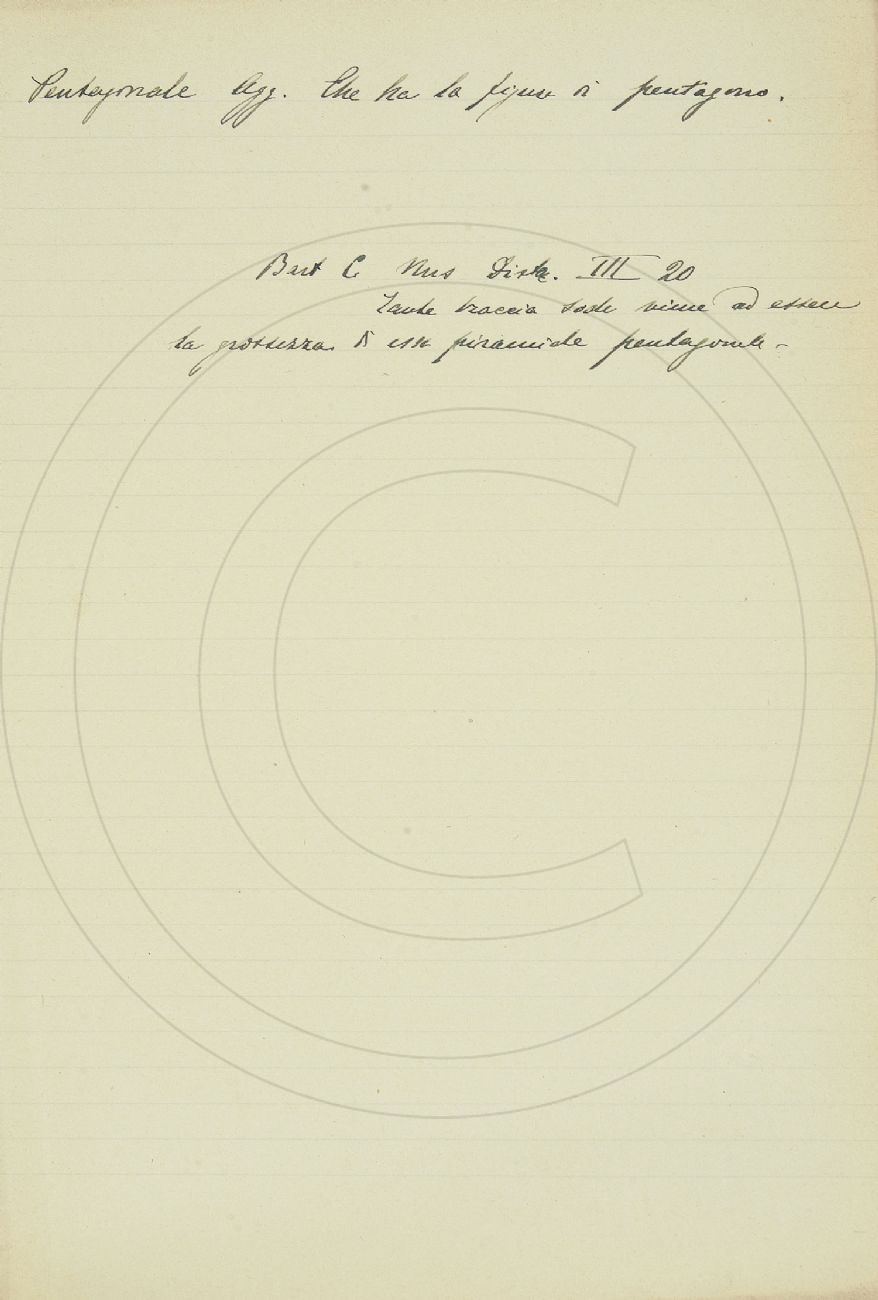 Pentagonale Agg. Che ha la figura di pentagono.
Bart C Mus Dista. III 20
Tante braccia sode viene ad essere
la grossezza di essa piramide pentagonale -